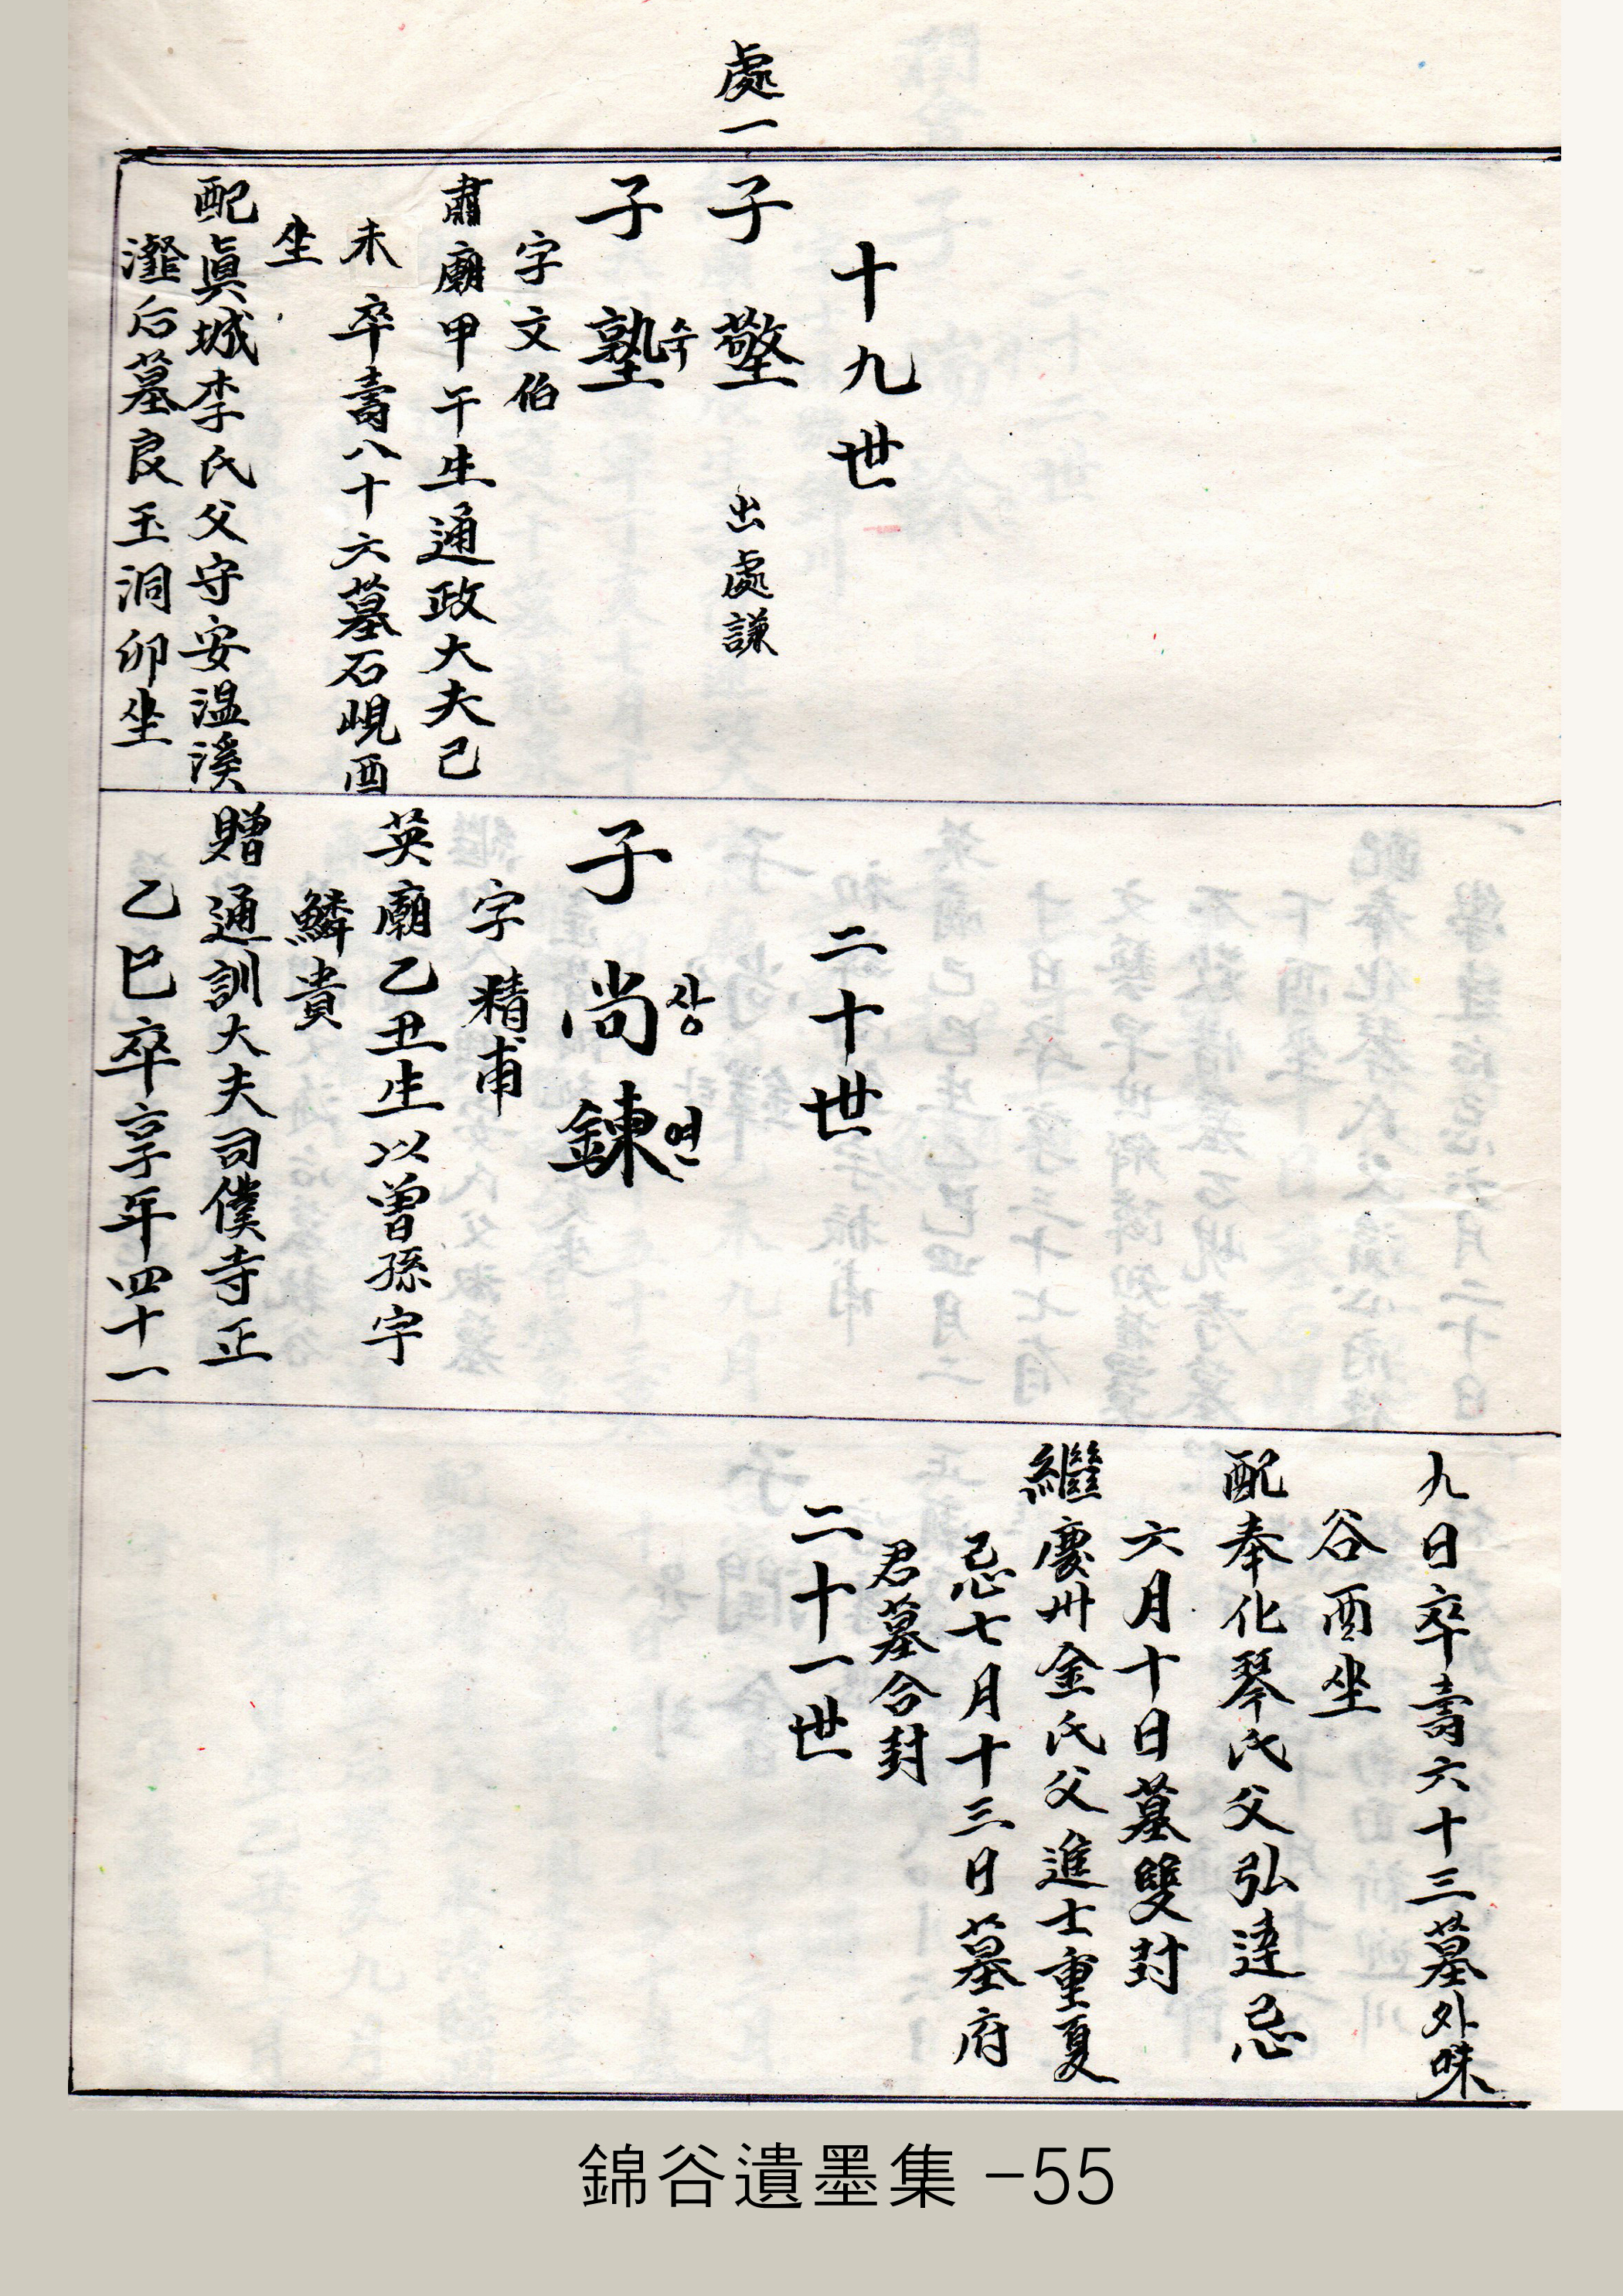 處一
十九世
子 墪 出處謙
子 塾 숙
字文伯
肅廟甲午生通政大夫己
未卒壽八十六墓石峴酉
坐
配眞城李氏父守安温溪
瀣后墓良玉洞卯坐
二十世
子 尚鍊 상 연
字 精甫
英廟乙丑生以曽孫宇
鱗貴
贈通訓大夫司僕寺正
乙巳卒享年四十一
九日卒壽六十三墓外味
谷酉坐
配奉化琴氏父弘逹忌
六月十日墓雙封
繼慶州金氏父進士重夏
忌七月十三日墓府
君墓合封
二十一世
錦谷遺墨集 -55